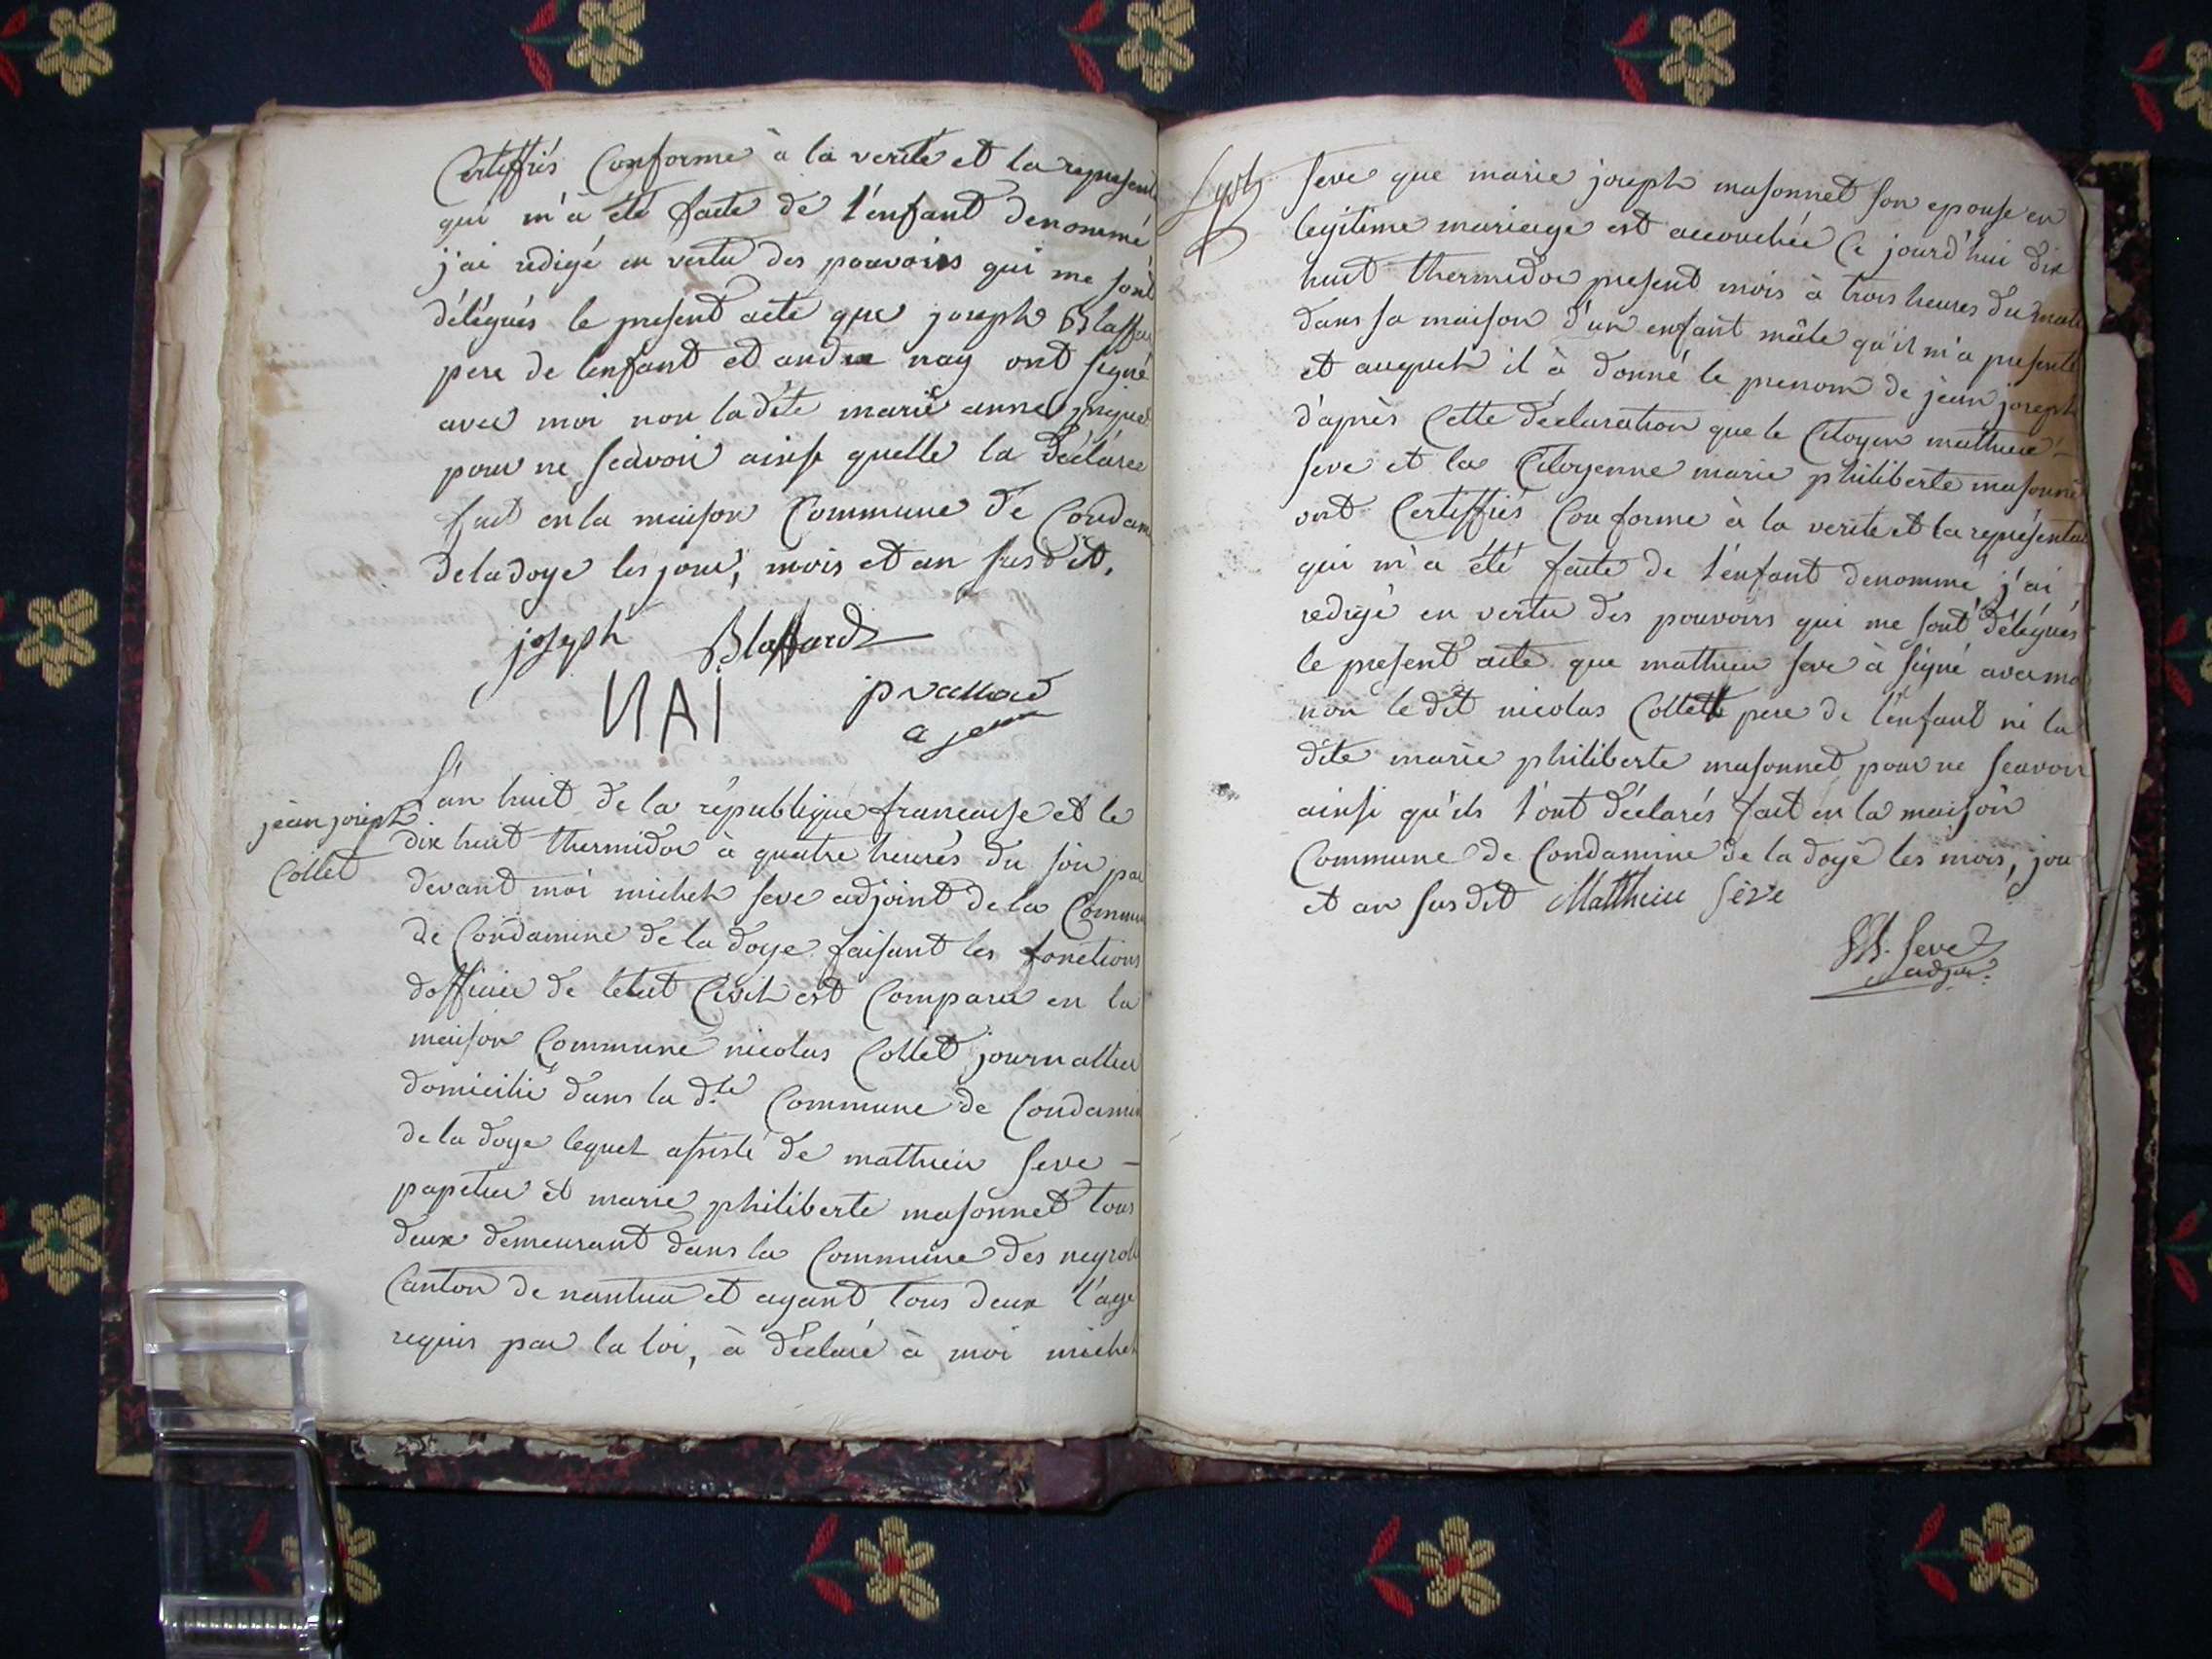 Certiffiés Conforme à la verité et la represent
qui m'à été faite de l'enfant denommé
j'ai redigé en vertu des pouvoirs qui me sont
délégués le present acte que joseph Blaffar
pere de lenfant et andre nay ont signé
avec moi non ladite marie anne
pour ne scavoir ainsi quelle la déclaree
fait en la maison Commune de Condam
de la doye les jour, mois et an susdit.
joseph Blaffard
NAI
a
jean joseph
Collet
L'an huit de la république francaise et le
dix huit thermidor à quatre heures du soir par
devant moi michel seve adjoint de la Commun
de Condamine de la doye faisant les fonctions
dofficier de letat Civil est Comparu en la
maison Commune nicolas Collet journallier
domicilié dans la d.te Commune de Condamin
de la doye lequel assisté de mathieu seve -
papetier et marie philiberte masonnet tous
deux demeurant dans la Commune des neyroll
Canton de nantua et ayant tous deux l'age
requis par la loi, à déclaré à moi michel
seve que marie joseph masonnet son epouse en
legitime mariage est accouchée Ce jourd'hui dix
huit thermidor present mois à trois heures du mati
dans sa maison d'un enfant mâle qu'il m'a presenté
et auquel il à donné le prenom de jean joseph
d'après Cette déclaration que le Citoyen mathieu -
seve et la Citoyenne marie philiberte masonne
ont Certiffiés Conforme à la verite et la representat
qui m'a été faite de l'enfant denommé j'ai
redigé en vertu des pouvoirs qui me sont délégués
le present acte que mathieu seve à signé avec mo
non le dit nicolas Collet pere de l'enfant ni la
dite marie philiberte masonnet pour ne scavoir
ainsi qu'ils l'ont déclarés fait en la maison
Commune de Condamine de la doye les mois, jou
et an susdit Matthieu Sève
M. Seve
adjoi.